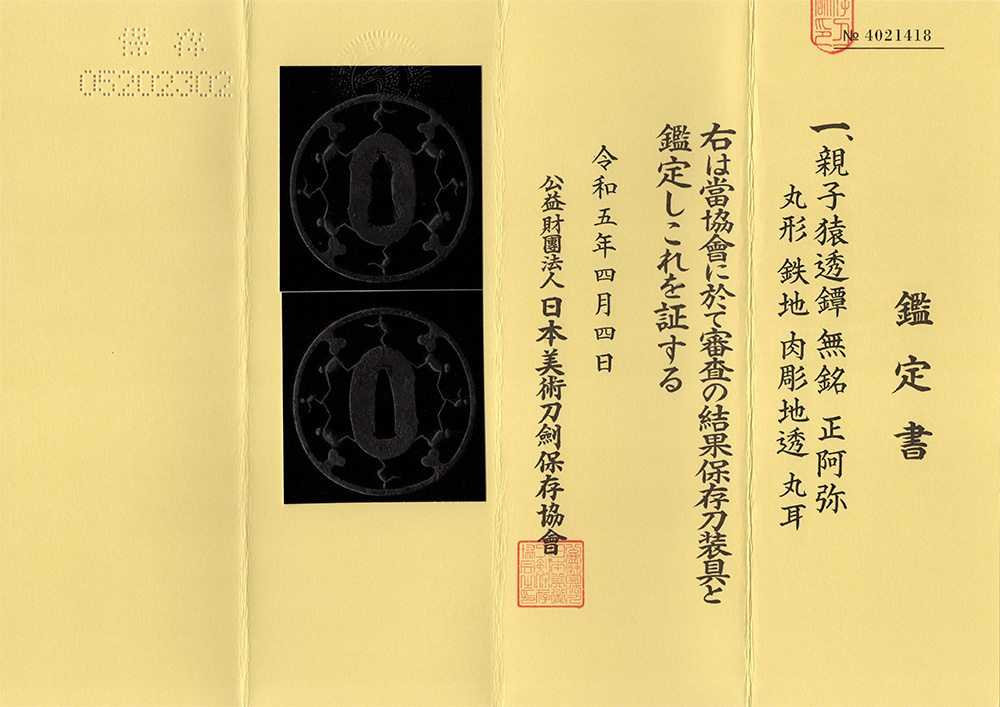 № 4021418
鑑定書
一、親子猿透鐔 無銘 正阿弥
丸形 鉄地 肉彫地透 丸耳
右は當協會に於て審査の結果保存刀装具と
鑑定しこれを証する
令和五年四月四日
公益財團法人 日本美術刀劍保存協會
保存
05202302